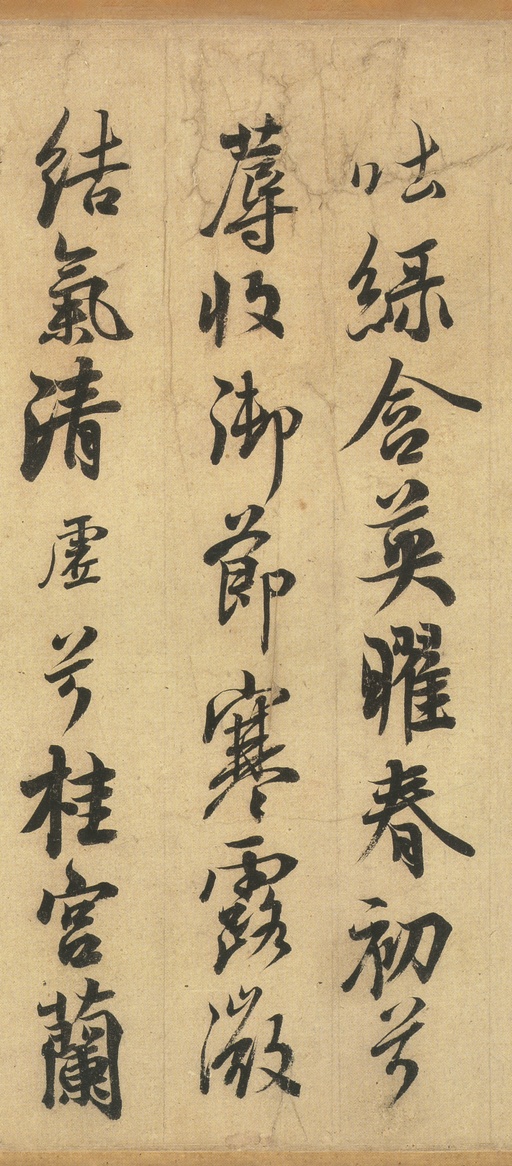 吐緑含英曜春初兮
蓐收御節寒露微
結氣清虛兮桂宮蘭